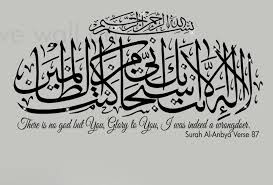 بسم الله الرحمن الرحيم
لا إله إلا أنت سبحانك إني كنت من الظالمين
There is no god but You, Glory to You, I was indeed a wrongdoer.
Surah Al-Anbya Verse 87